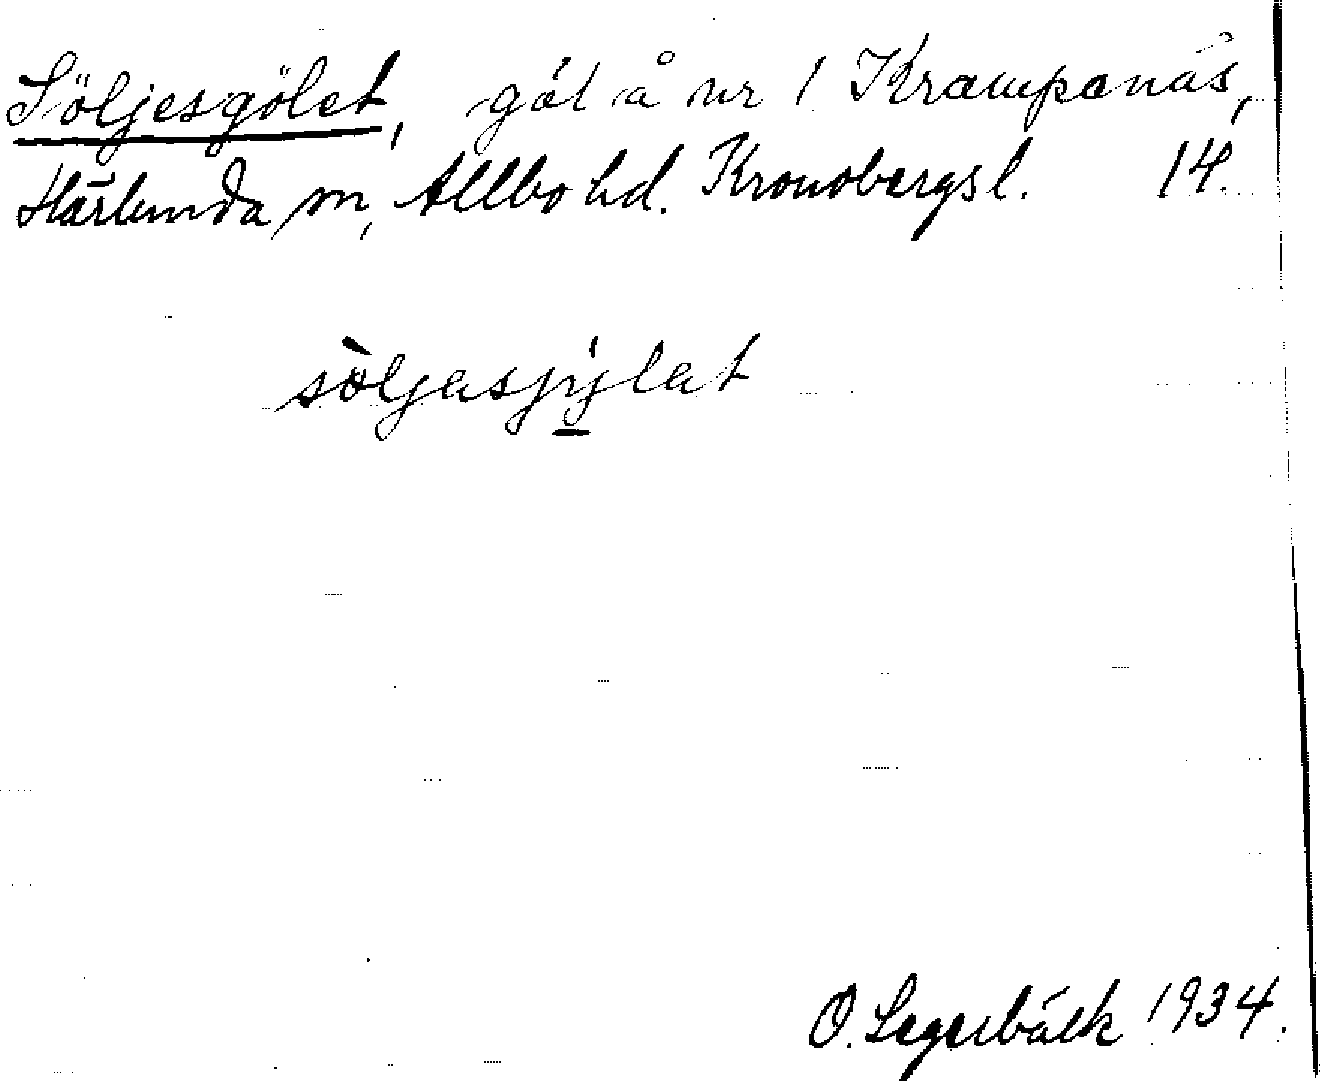 Söljesgölet, göl å nr 1 Krampanäs,
Härlunda sn, Allbo hd. Kronobergs l. 14.
sòljasjy̱lat
O. Legerbäck 1934.